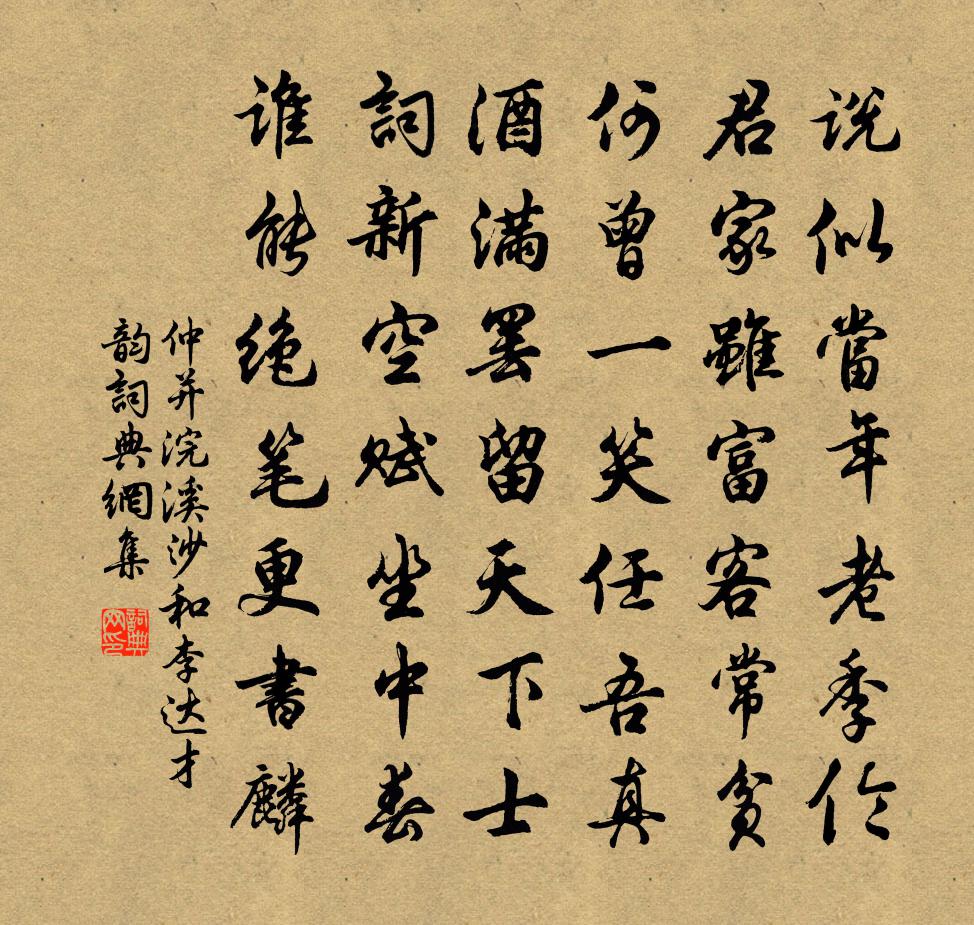 说似當年老季伦
君家雖富客常貧
何曾一笑任吾真
酒满罢留天下士
詞新空赋坐中春
谁能绝笔更書麟
仲并浣溪沙和李达才
韵詞典網集
詞典网印